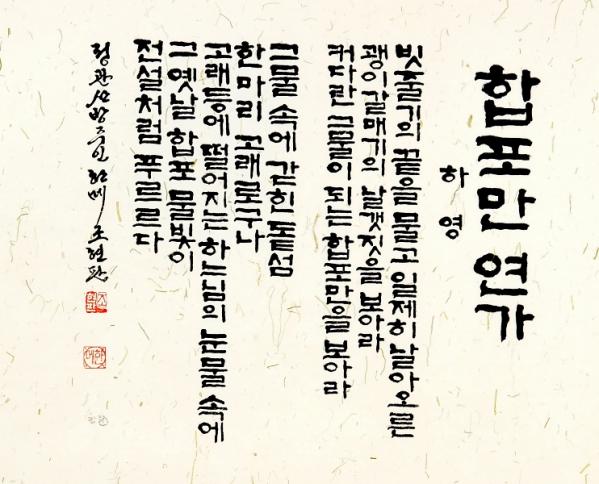 합포만 연가
하영
빗줄기의 끝을 물고 일제히 날아오른
괭이갈매기의 날갯짓을 보아라
커다란 그물이 되는 합포만을 보아라
그물 속에 갇힌 돝섬
한마리 고래로구나
고래등에 떨어지는 하느님의 눈물 속에
그 옛날 합포 물빛이
전설처럼 푸르르다
청관산방주인 한메 조현판